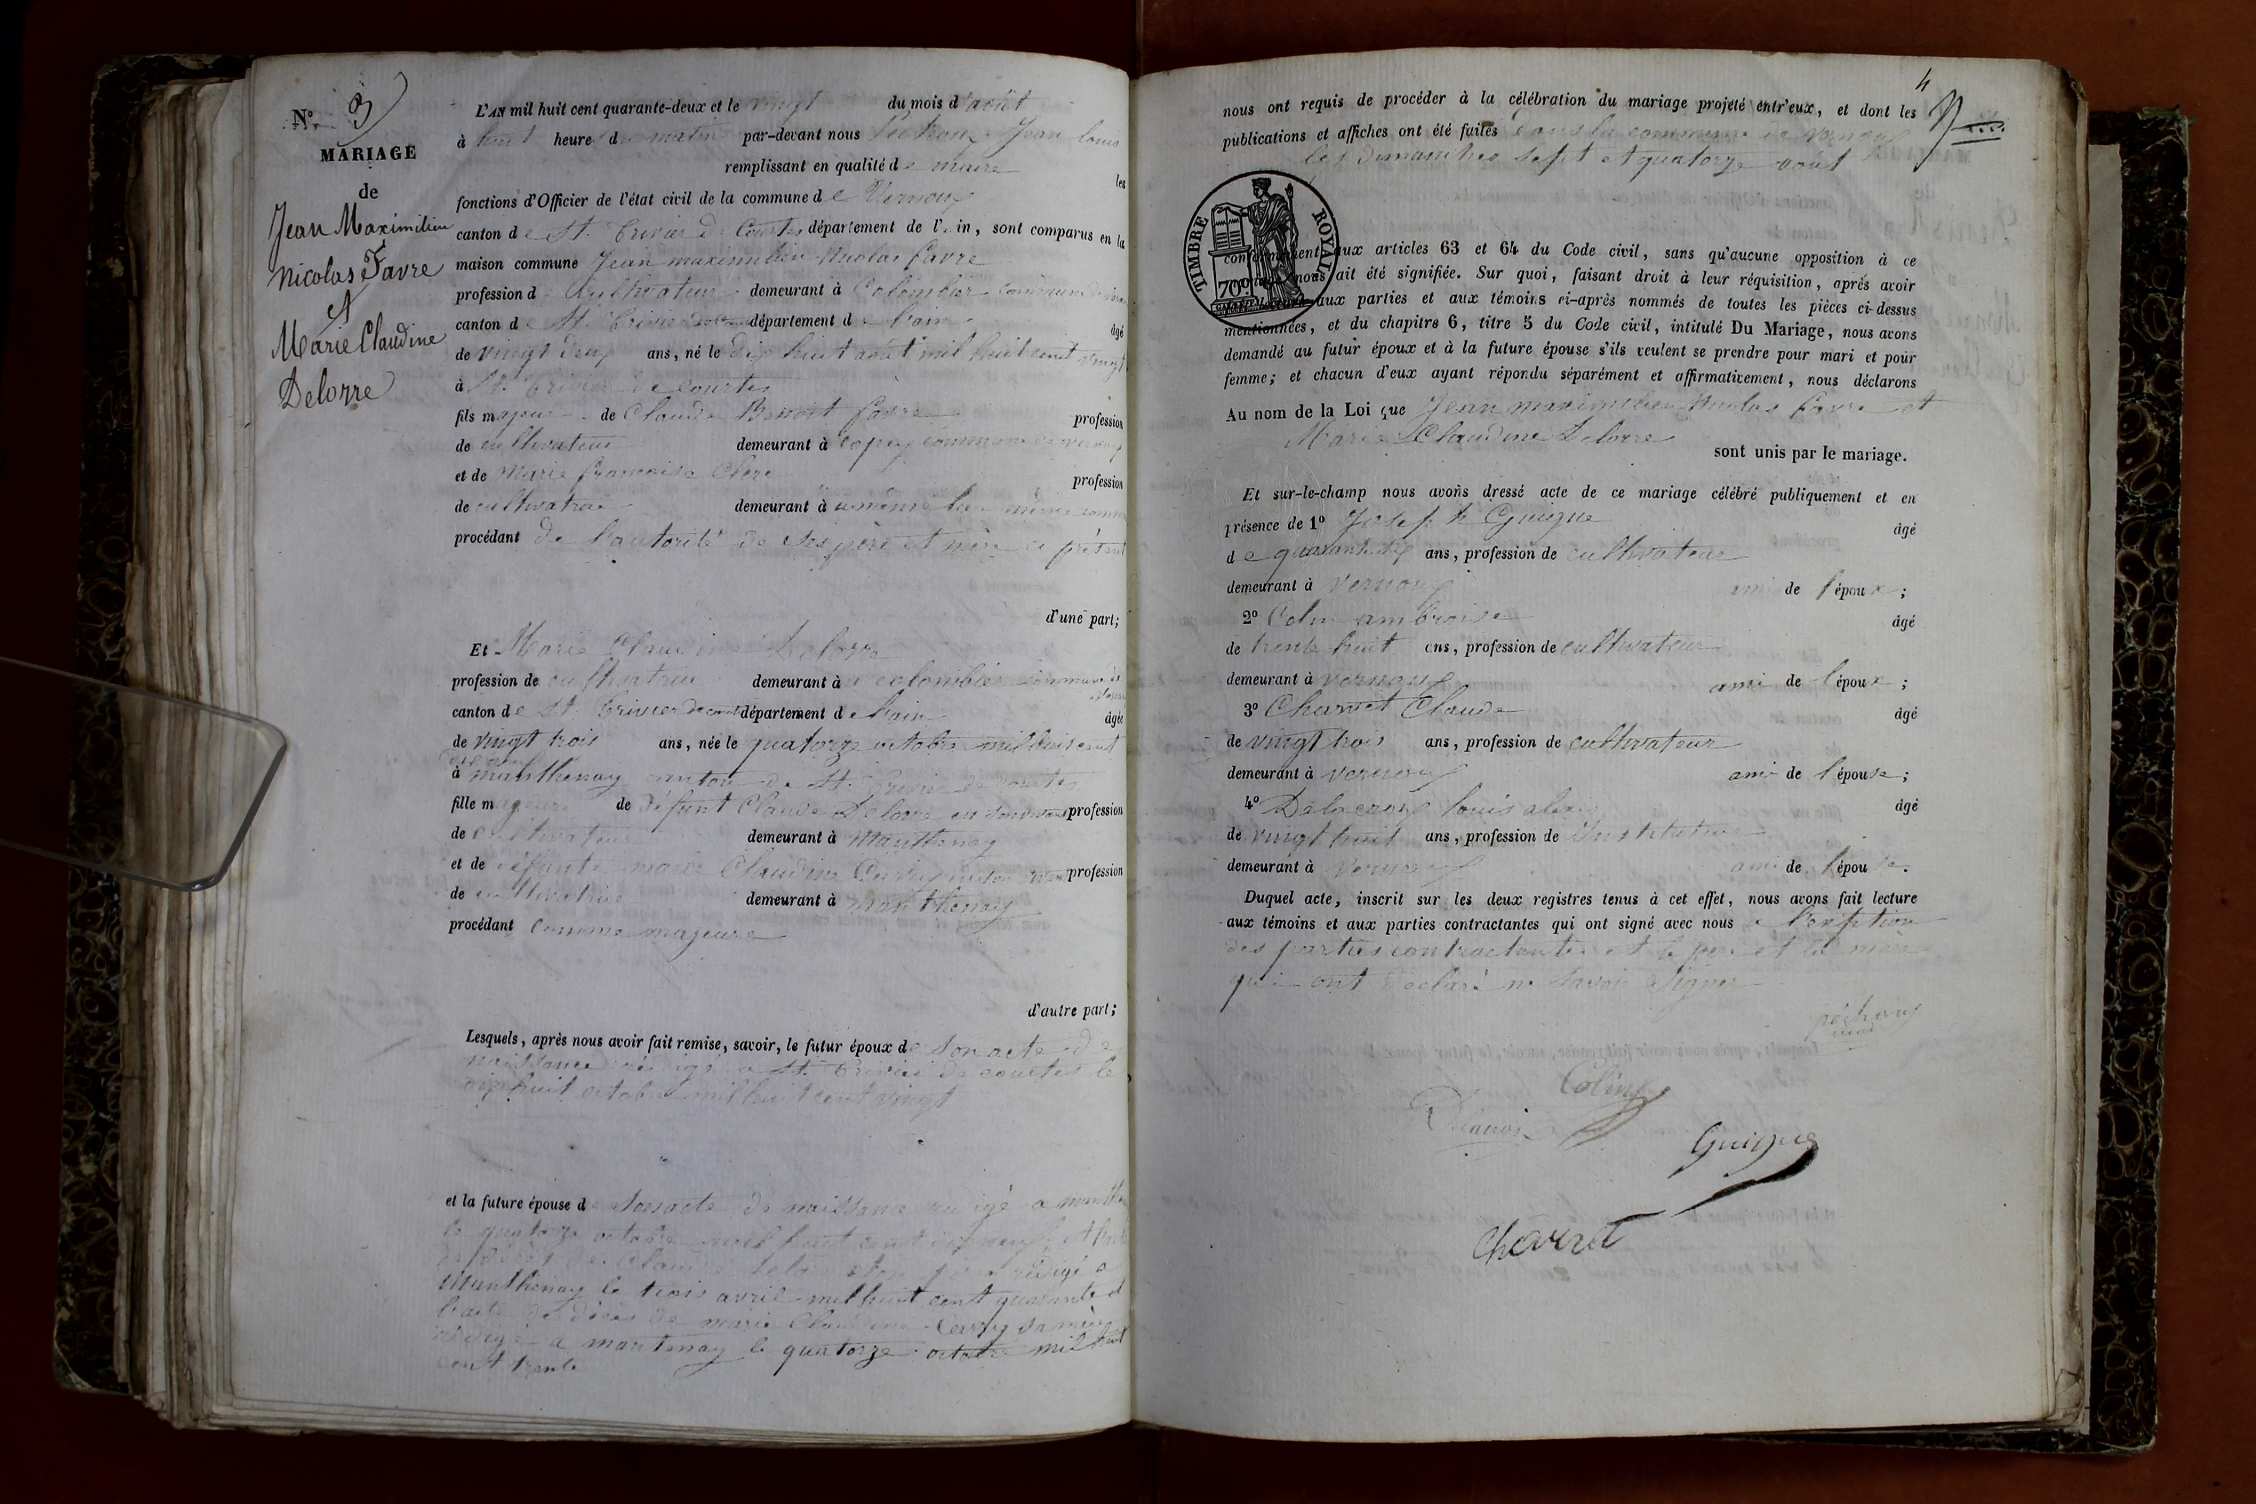 N° 3
MARIAGE
de
Jean Maximilien
Nicolas Favre
et
Marie Claudine
Delorre
L'AN mil huit cent quarante-deux et le vingt du mois d'août
à huit heure du matin par-devant nous Jean louis
remplissant en qualité de maire les
fonctions d'Officier de l'état civil de la commune de Vernoux
canton de St. Trivier de Courtes département de l'Ain, sont comparus en la
maison commune Jean maximilien Nicolas favre
profession de Cultivateur demeurant à Colombier commune de
canton de St. Trivier de département de l'ain âgé
de vingt deux ans, né le dix huit août mil huit cent vingt
à St. Trivier de courtes
fils majeur de Claude Benoit favre profession
de cultivateur demeurant à commune de vernoux
et de Marie françoise Clerc profession
de cultivatrice demeurant à même
procédant de l'autorité de ses père et mère ci présent
d'une part;
Et Marie Claudine Delorre
profession de cultivatrice demeurant à colombier commune de
canton de St. Trivier de département de l'ain âgée
de vingt trois ans, née le quatorze octobre mil huit cent
à manthenay canton de St. Trivier de courtes
fille majeure de défunt Claude Delorre en son vivant profession
de cultivateur demeurant à Manthenay
et de défunte marie Claudine profession
de cultivatrice demeurant à manthenay
procédant comme majeure
d'autre part;
Lesquels, après nous avoir fait remise, savoir, le futur époux de son acte de
naissance rédigé a St. Trivier de courtes le
dix huit octobre mil huit cent vingt
et la future épouse de son acte de naissance rédigé a
le quatorze octobre mil huit cent dix neuf
rédigé a
Manthenay le trois avril mil huit cent quarante et
l'acte de décès de marie Claudine sa mère
rédigé a mantenay le quatorze octobre mil huit
cent trente
4
nous ont requis de procéder à la célébration du mariage projeté entr'eux, et dont les
publications et affiches ont été faites dans la commune de vernoux
les dimanches sept et quatorze aout
TIMBRE ROYAL
conformément aux articles 63 et 64 du Code civil, sans qu'aucune opposition à ce
nous ait été signifiée. Sur quoi, faisant droit à leur réquisition, après avoir
aux parties et aux témoins ci-après nommés de toutes les pièces ci-dessus
mentionnées, et du chapitre 6, titre 5 du Code civil, intitulé Du Mariage, nous avons
demandé au futur époux et à la future épouse s'ils veulent se prendre pour mari et pour
femme; et chacun d'eux ayant répondu séparément et affirmativement, nous déclarons
Au nom de la Loi que Jean maximilien Nicolas favre et
Marie Claudine Delorre
sont unis par le mariage.
Et sur-le-champ nous avons dressé acte de ce mariage célébré publiquement et en
présence de 1° Joseph Guigue âgé
de ans, profession de cultivateur
demeurant à vernoux ami de l'époux;
2° Colin ambroise âgé
de trente huit ans, profession de cultivateur
demeurant à vernoux ami de l'époux;
3° Charvet Claude âgé
de vingt trois ans, profession de cultivateur
demeurant à vernoux ami de l'épouse;
4° Delacroix louis âgé
de vingt huit ans, profession de Instituteur
demeurant à vernoux ami de l'épouse.
Duquel acte, inscrit sur les deux registres tenus à cet effet, nous avons fait lecture
aux témoins et aux parties contractantes qui ont signé avec nous a l'exeption
des parties contractantes et le père et la mère
qui ont déclaré ne savoir signer
Colin
Guigue
Charvet